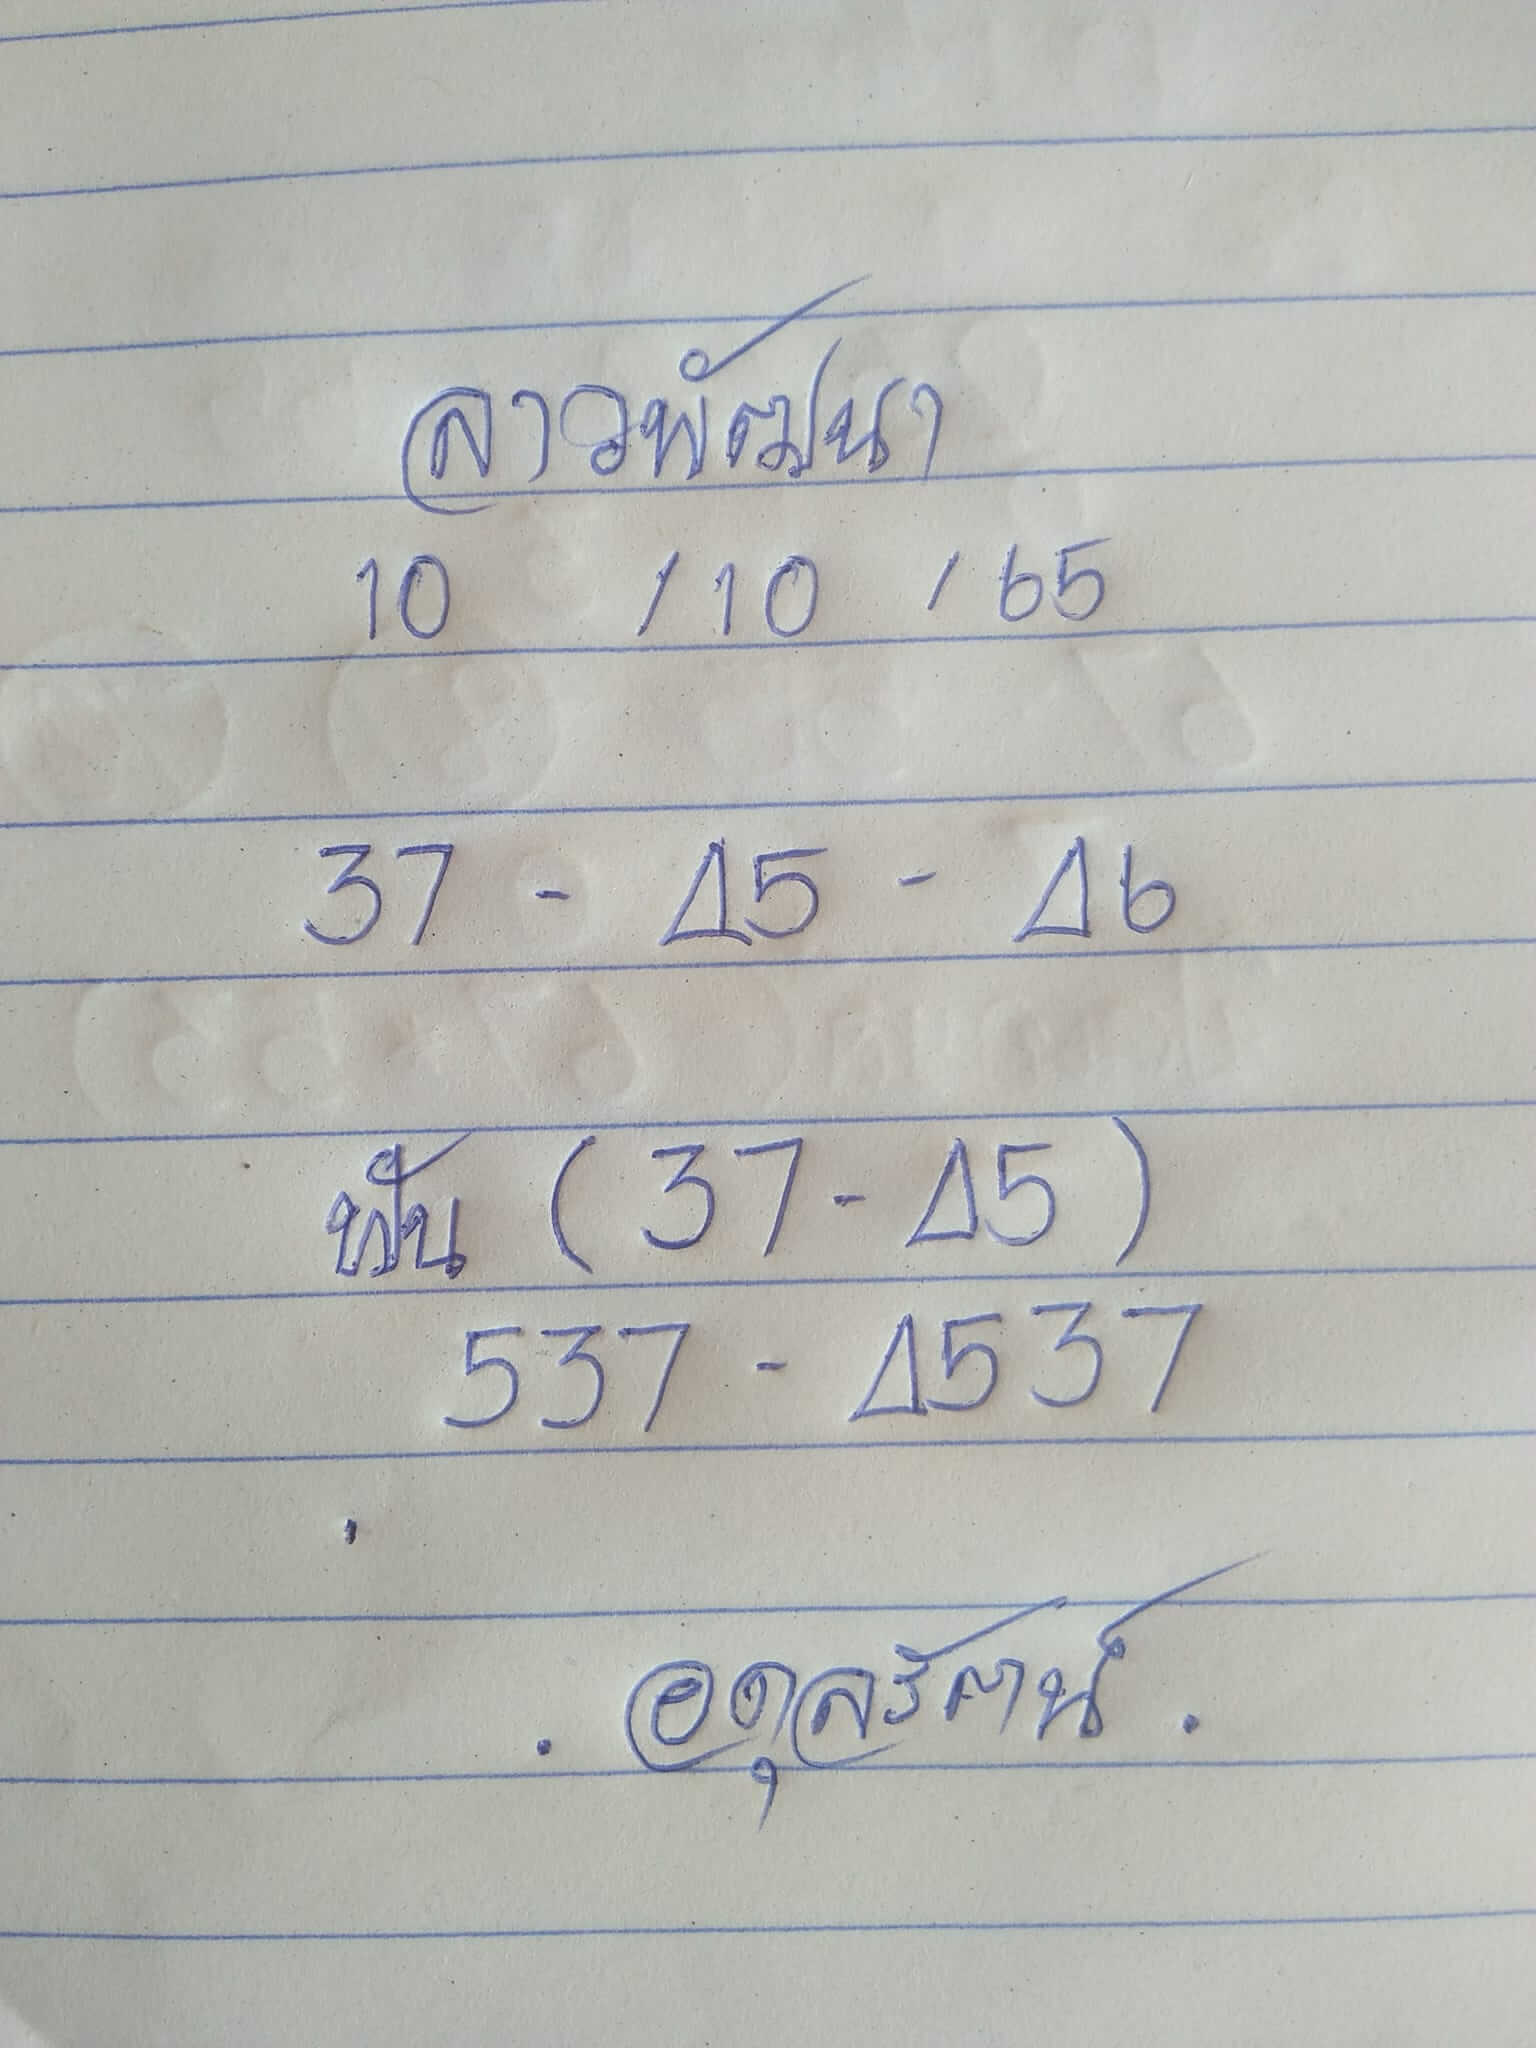 ลาวพัฒนา
10 / 10 / 65
37 - Δ5 - Δ6
ฟัน (37 - Δ5)
537 - Δ537
. อดุลรัตน์ .